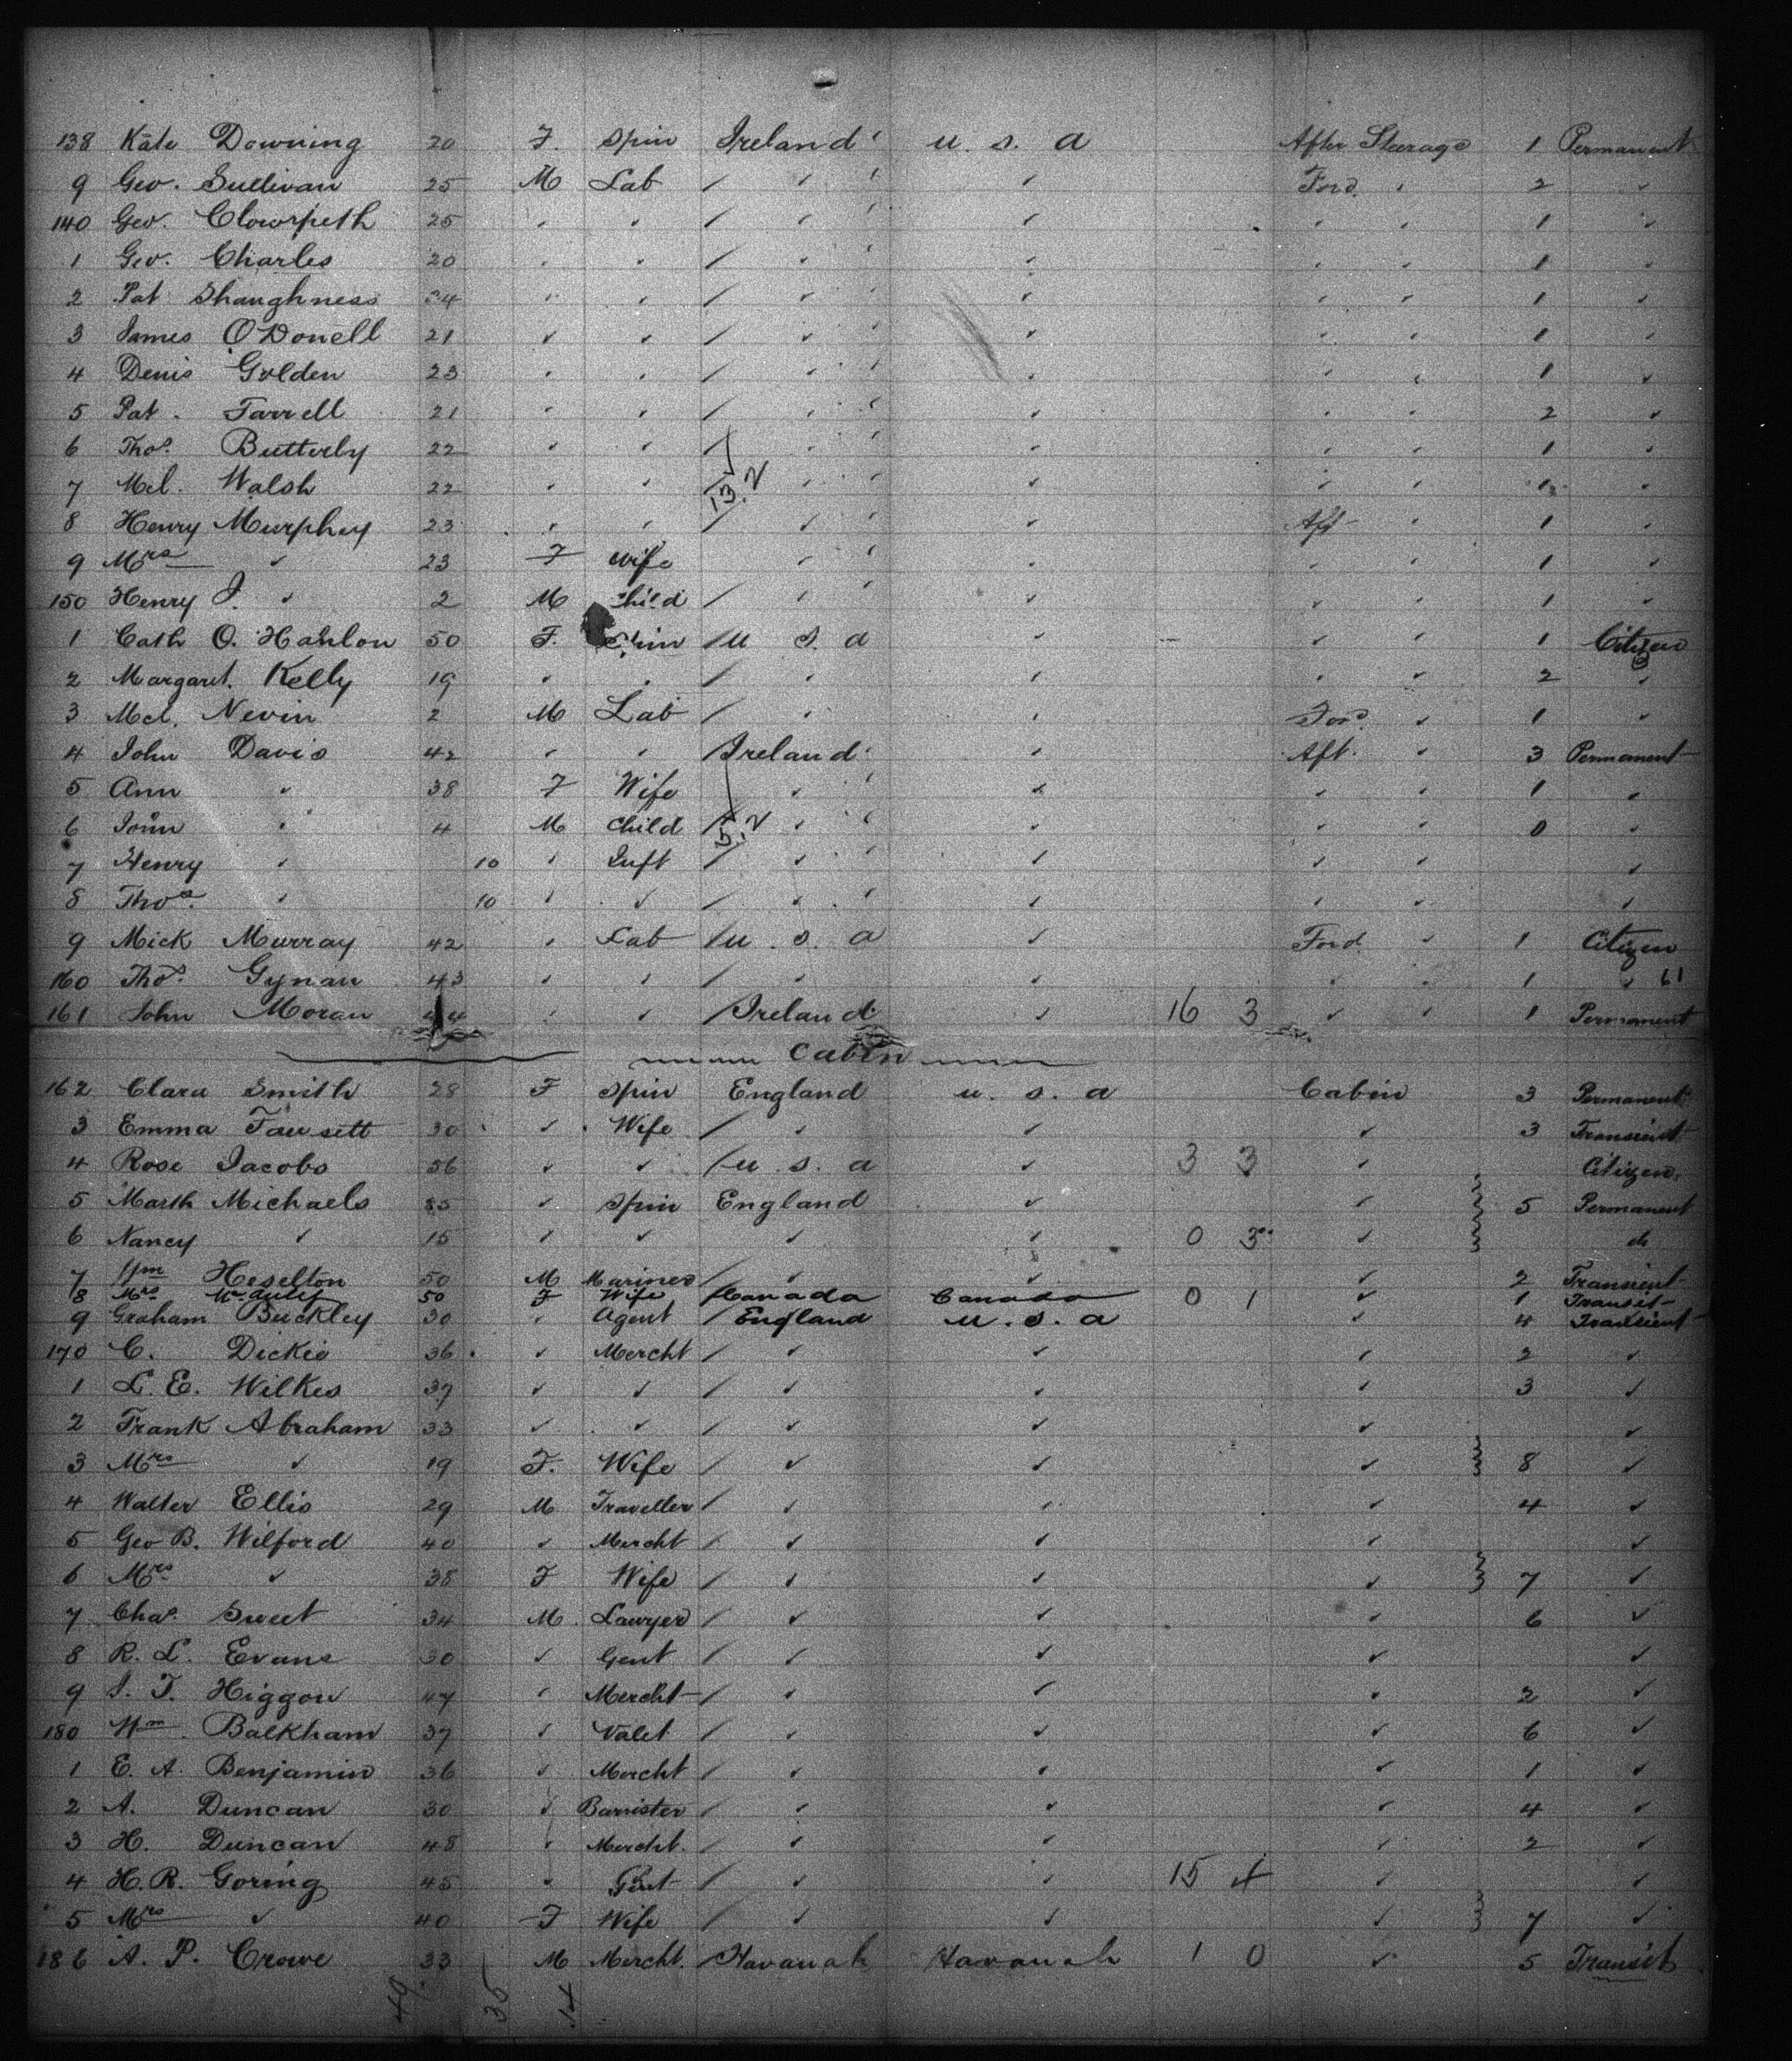 138 Kate Downing 20 F. Spin Ireland u. s. a After Steerage 1 Permanent
9 Geo. Sullivan 25 M Lab / ✓ ✓ Ford. ✓ 2 ✓
140 Geo. 25 ✓ ✓ / ✓ ✓ ✓ ✓ 1 ✓
1 Geo. Charles 20 ✓ ✓ / ✓ ✓ ✓ ✓ 1 ✓
2 Pat Shaughness 24 ✓ ✓ / ✓ ✓ ✓ ✓ 1 ✓
3 James O'Donell 21 ✓ ✓ / ✓ ✓ ✓ ✓ 1 ✓
4 Denis Golden 23 ✓ ✓ / ✓ ✓ ✓ ✓ 1 ✓
5 Pat. Farrell 21 ✓ ✓ / ✓ ✓ ✓ ✓ 2 ✓
6 Thos. Butterly 22 ✓ ✓ / ✓ ✓ ✓ ✓ 1 ✓
7 Mcl. Walsh 22 ✓ ✓ 13.2 ✓ ✓ ✓ ✓ 1 ✓
8 Henry Murphey 23 ✓ ✓ / ✓ ✓ Aft ✓ 1 ✓
9 Mrs ✓ 23 F Wife ✓ ✓ ✓ ✓ 1 ✓
150 Henry J. ✓ 2 M Child / ✓ ✓ ✓ ✓ 1 ✓
1 Cath O. Hanlon 50 F. Spin / u s. a ✓ ✓ ✓ 1 Citizen
2 Margaret. Kelly 19 ✓ ✓ / ✓ ✓ ✓ ✓ 2 3 ✓
3 Mcl. Nevin 2 M Lab / ✓ ✓ Ford ✓ 1 ✓
4 John Davis 42 ✓ ✓ / Ireland ✓ Aft. ✓ 3 Permanent
5 Ann ✓ 38 F Wife ✓ ✓ ✓ ✓ 1 ✓
6 John ✓ 4 M Child / 5.2 ✓ ✓ ✓ ✓ 0 ✓
7 Henry ✓ 10 ✓ Inft / ✓ ✓ ✓ ✓ ✓
8 Thos. ✓ 10 ✓ ✓ / ✓ ✓ ✓ ✓ ✓
9 Mick Murray 42 ✓ Lab / u. s. a ✓ Ford ✓ 1 Citizen
160 Thos. Gynan 43 ✓ ✓ / ✓ ✓ ✓ ✓ 1 ✓ 61
161 John Moran 44 ✓ ✓ / Ireland ✓ 16 3 ✓ ✓ 1 Permanent
Cabin
162 Clara Smith 28 F Spin England u. s. a Cabin 3 Permanent
3 Emma Fawsett 30 ✓ Wife / ✓ ✓ ✓ 3 Transient
4 Rose Jacobs 56 ✓ ✓ / u. s. a ✓ 3 3 ✓ Citizen.
5 Marth Michaels ✓ Spin England ✓ ✓ 5 Permanent
6 Nancy ✓ 15 ✓ ✓ ✓ ✓ 0 3 ✓ do
7 Wm Heselton 50 M Mariner / ✓ ✓ ✓ 2 Transient
8 Mrs 50 F Wife / Canada Canada 0 1 ✓ 1 Transit
9 Graham Buckley 30 ✓ Agent / England u. s. a ✓ 4 Transient
170 C. Dickie 36 ✓ Mercht / ✓ ✓ ✓ 2 ✓
1 L. E. Wilkes 37 ✓ ✓ / ✓ ✓ ✓ 3 ✓
2 Frank Abraham 33 ✓ ✓ / ✓ ✓ ✓ ✓
3 Mrs ✓ 19 F. Wife / ✓ ✓ ✓ 8 ✓
4 Walter Ellis 29 M Traveller / ✓ ✓ ✓ 4 ✓
5 Geo B. Wilford 40 ✓ Mercht / ✓ ✓ ✓ ✓
6 Mrs ✓ 38 F Wife / ✓ ✓ ✓ 7 ✓
7 Chas. Sweet 34 M. Lawyer / ✓ ✓ ✓ 6 ✓
8 R. L. Evans 30 ✓ Gent / ✓ ✓ ✓ ✓
9 J. T. Higgon 47 ✓ Mercht / ✓ ✓ ✓ 2 ✓
180 Wm. Balkham 37 ✓ Valet / ✓ ✓ ✓ 6 ✓
1 E. A. Benjamin 36 ✓ Mercht / ✓ ✓ ✓ 1 ✓
2 A. Duncan 30 ✓ Barrister / ✓ ✓ ✓ 4 ✓
3 H. Duncan 48 ✓ Mercht. / ✓ ✓ ✓ 2 ✓
4 H. R. Goring 45 ✓ Gent / ✓ ✓ 15 4 ✓ ✓
5 Mrs ✓ 40 F Wife / ✓ ✓ ✓ 7 ✓
186 A. P. Crowe 33 M Mercht. Havanah Havanah 1 0 ✓ 5 Transit
49. 35 14